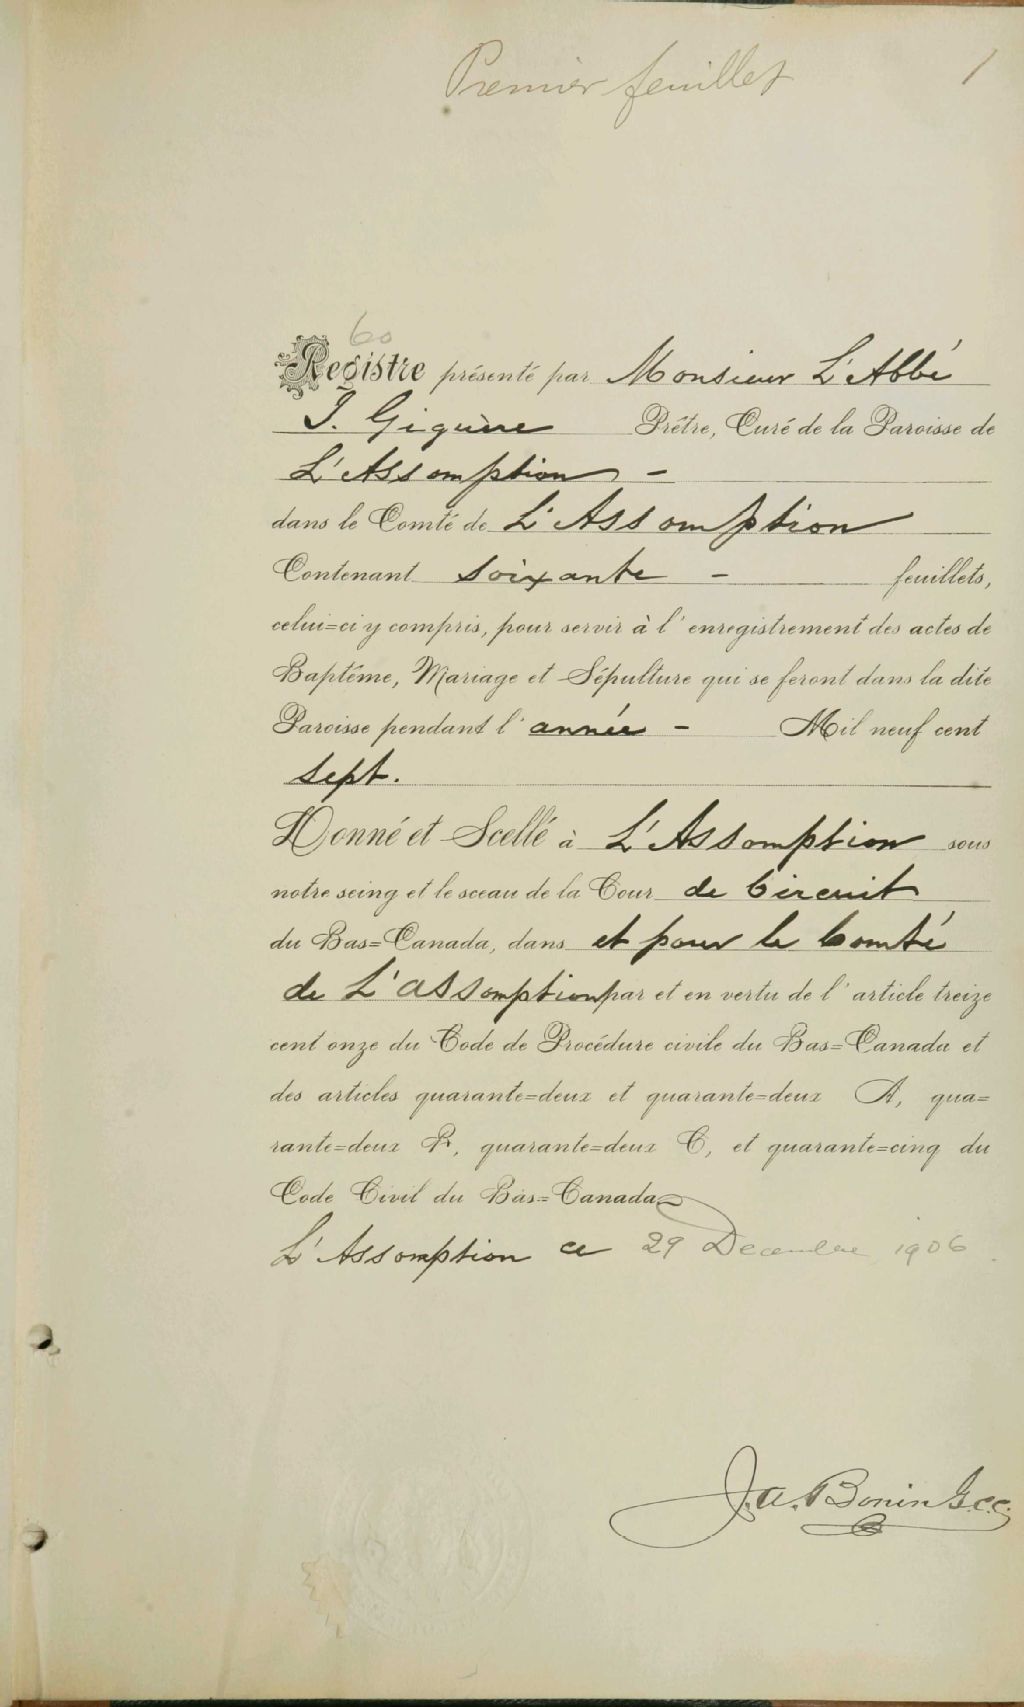 Premier feuillet 1
60
Registre présenté par Monsieur L'Abbé
J. Giguère Prêtre, Curé de la Paroisse de
L'Assomption -
dans le Comté de L'Assomption
Contenant soixante - feuillets,
celui=ci y compris, pour servir à l'enregistrement des actes de
Baptême, Mariage et Sépulture qui se feront dans la dite
Paroisse pendant l'année - Mil neuf cent
sept.
Donné et Scellé à L'Assomption sous
notre seing et le sceau de la Cour de Circuit
du Bas=Canada, dans et pour le Comté
de L'Assomption par et en vertu de l'article treize
cent onze du Code de Procédure civile du Bas=Canada et
des articles quarante=deux et quarante=deux A, qua=
rante=deux B, quarante=deux C, et quarante=cinq du
Code Civil du Bas=Canada
L'Assomption ce 29 Decembre 1906
J. A. Bonin G.C.C.